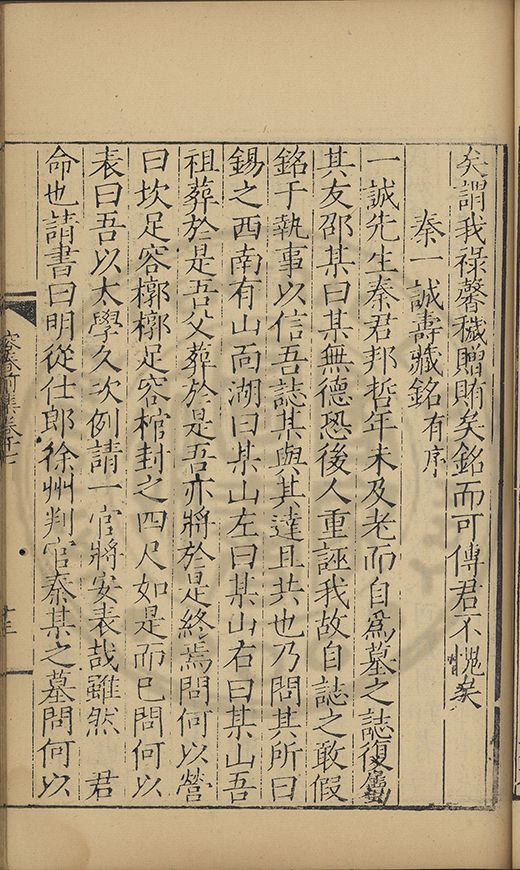 矣謂我祿馨穢贈賄矣銘而可傳君不愧矣
秦一誠壽藏銘有序
一誠先生秦君邦哲年未及老而自為墓之誌復屬
其友邵某曰某無德恐後人重誣我故自誌之敢假
銘于執事以信吾誌某與其達且共也乃問其所曰
錫之西南有山面湖曰某山左曰某山右曰某山吾
祖葬於是吾父葬於是吾亦將於是終焉問何以營
曰坎足容槨槨足容棺封之四尺如是而已問何以
表曰吾以太學久次例請一官將安表哉雖然君
命也請書曰明從仕郎徐州判官秦某之墓問何以
容春前集卷十七
十三